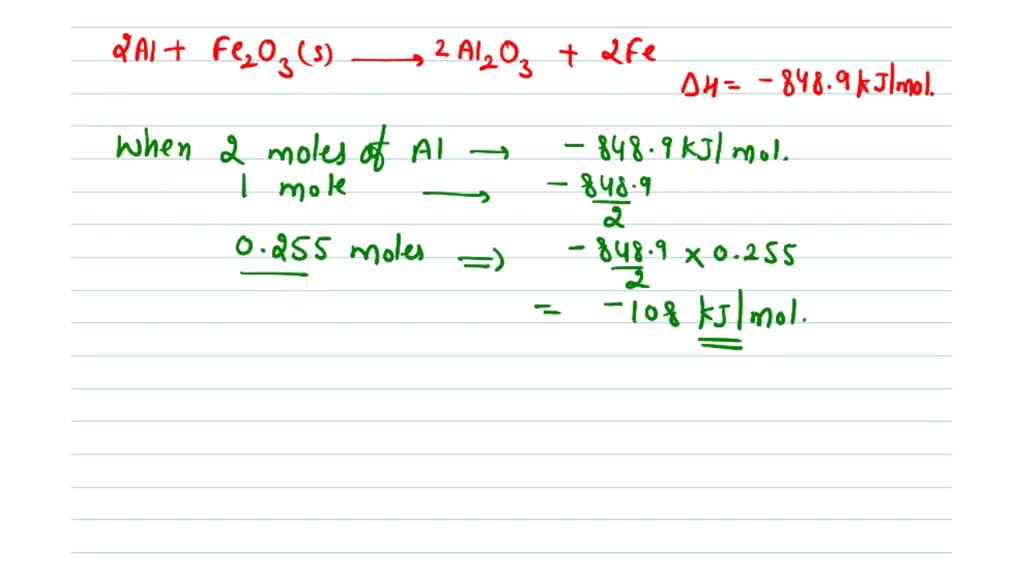 2Al + Fe₂O₃(s) ⟶ 2 Al₂O₃ + 2Fe
ΔH = -848.9 kJ/mol.
When 2 moles of Al → -848.9 kJ/mol.
1 mole ⟶ -848.9/2
0.255 moles ⇒ -848.9/2 × 0.255
= -108 kJ/mol.